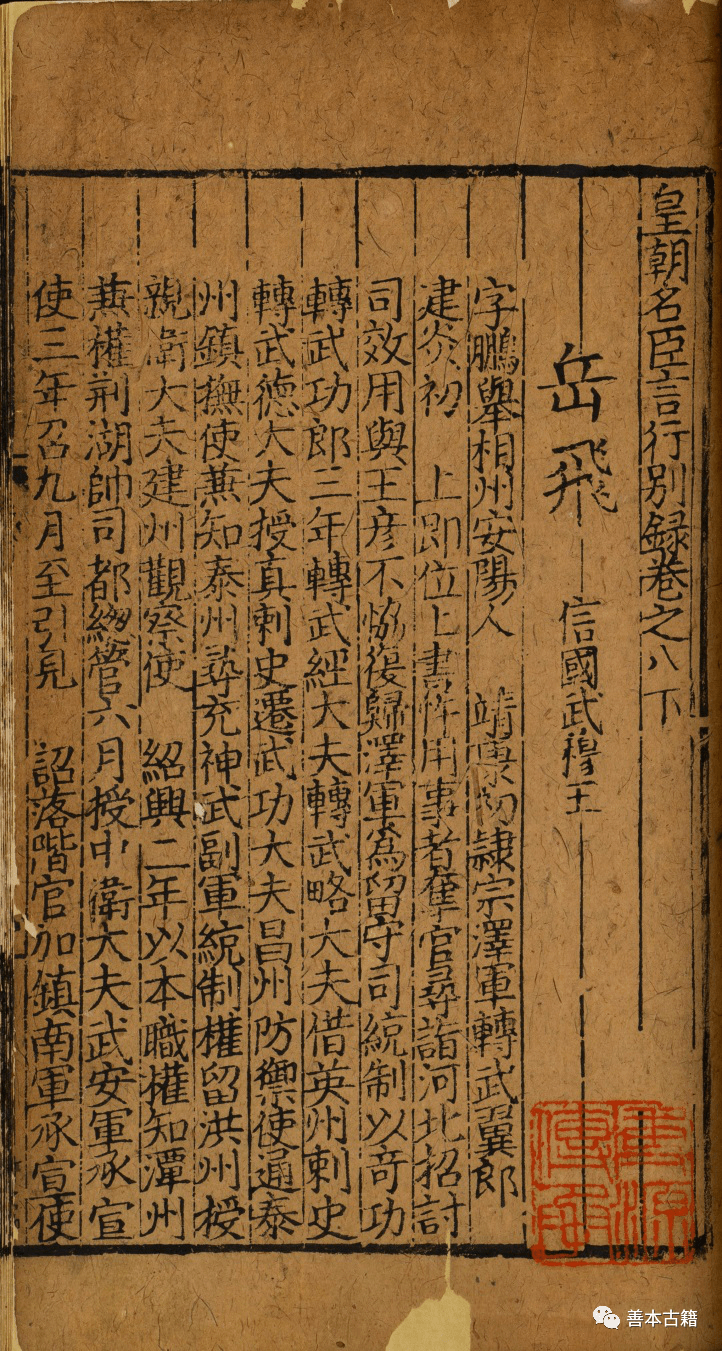 皇朝名臣言行別録卷之八下
岳飛 信國武穆王
字鵬舉相州安陽人 靖康初隷宗澤軍轉武翼郎
建炎初 上即位上書忤用事者奪官尋詣河北招討
司效用與王彦不恊復歸澤軍爲留守司統制以竒功
轉武功郎三年轉武經大夫轉武略大夫借英州刺史
轉武德大夫授真刺史遷武功大夫昌州防禦使通泰
州鎮撫使蕪知泰州尋充神武副軍統制權留洪州授
親衛大夫建州觀察使 紹興二年以本職權知潭州
蕪權荆湖帥司都緫管六月授中衛大夫武安軍承宣
使三年召九月至引見 詔落階官加鎮南軍承宣使
善本古籍